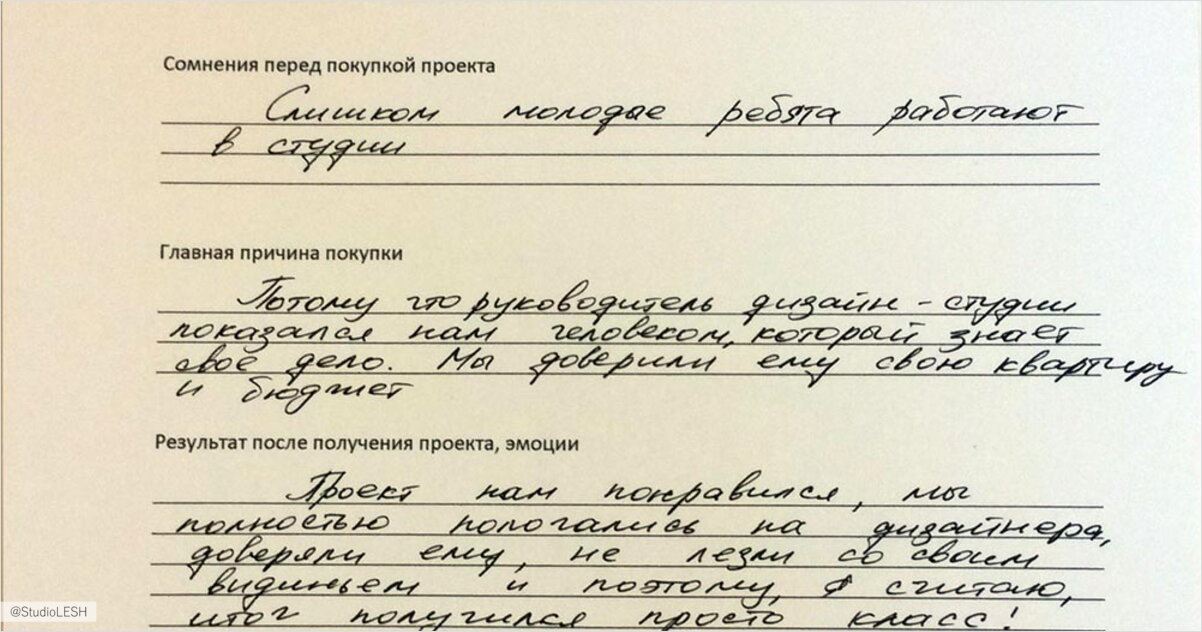 Сомнения перед покупкой проекта
Слишком молодые ребята работают
в студии
Главная причина покупки
Потому что руководитель дизайн-студии
показался нам человеком, который знает
своё дело. Мы доверили ему свою квартиру
и бюджет
Результат после получения проекта, эмоции
Проект нам понравился, мы
полностью пологались на дизайнера,
доверяли ему, не лезли со своим
видиньем и поэтому, я считаю,
итог получился просто класс!
@StudioLESH